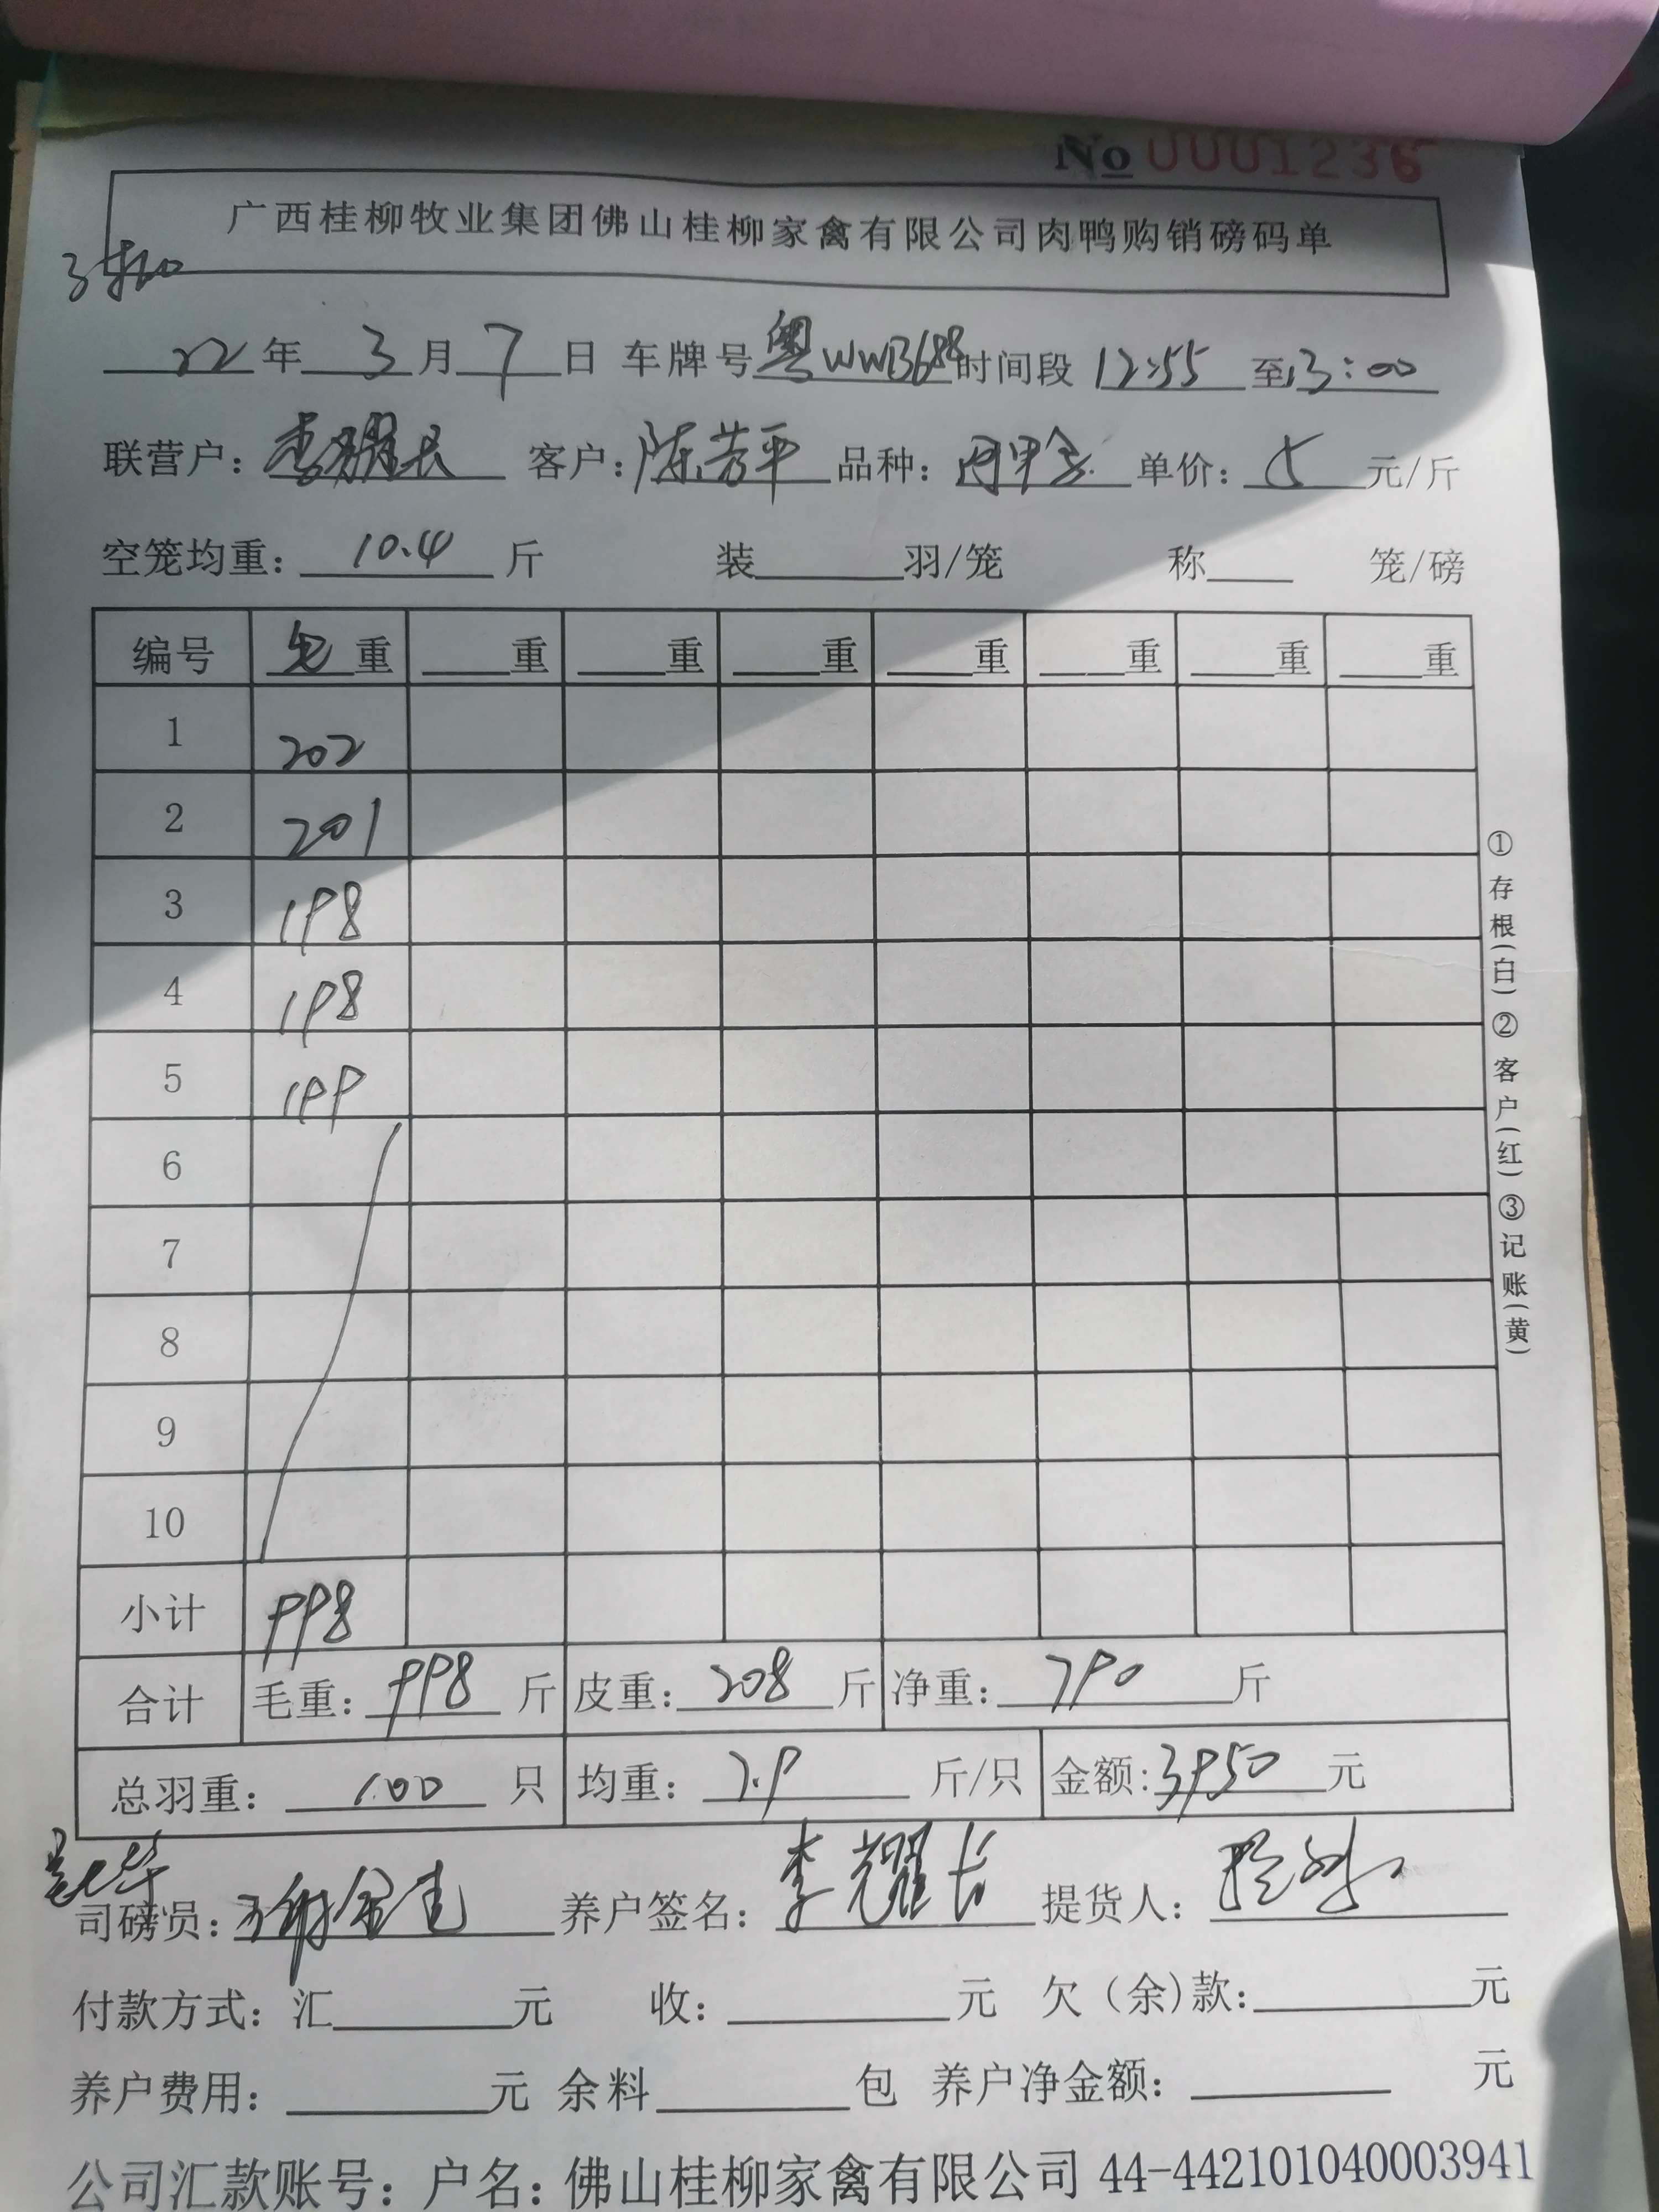 No 0001236
广西桂柳牧业集团佛山桂柳家禽有限公司肉鸭购销磅码单
22年3月7日 车牌号粤WWB688时间段 12:55 至13:00
联营户：李耀长 客户：陈芳平 品种： 单价：5元/斤
空笼均重：10.4斤 装 羽/笼 称 笼/磅
编号 毛重 重 重 重 重 重 重 重
1 202
2 201
3 198
4 198
5 199
6
7
8
9
10
小计 998
合计 毛重：998斤 皮重：208斤 净重：790斤
总羽重：100只 均重：7.9斤/只 金额：3950元
司磅员：谢金 养户签名：李耀长 提货人：
付款方式：汇 元 收： 元 欠（余）款： 元
养户费用： 元 余料 包 养户净金额： 元
公司汇款账号：户名：佛山桂柳家禽有限公司 44-442101040003941
①存根(白)②客户(红)③记账(黄)